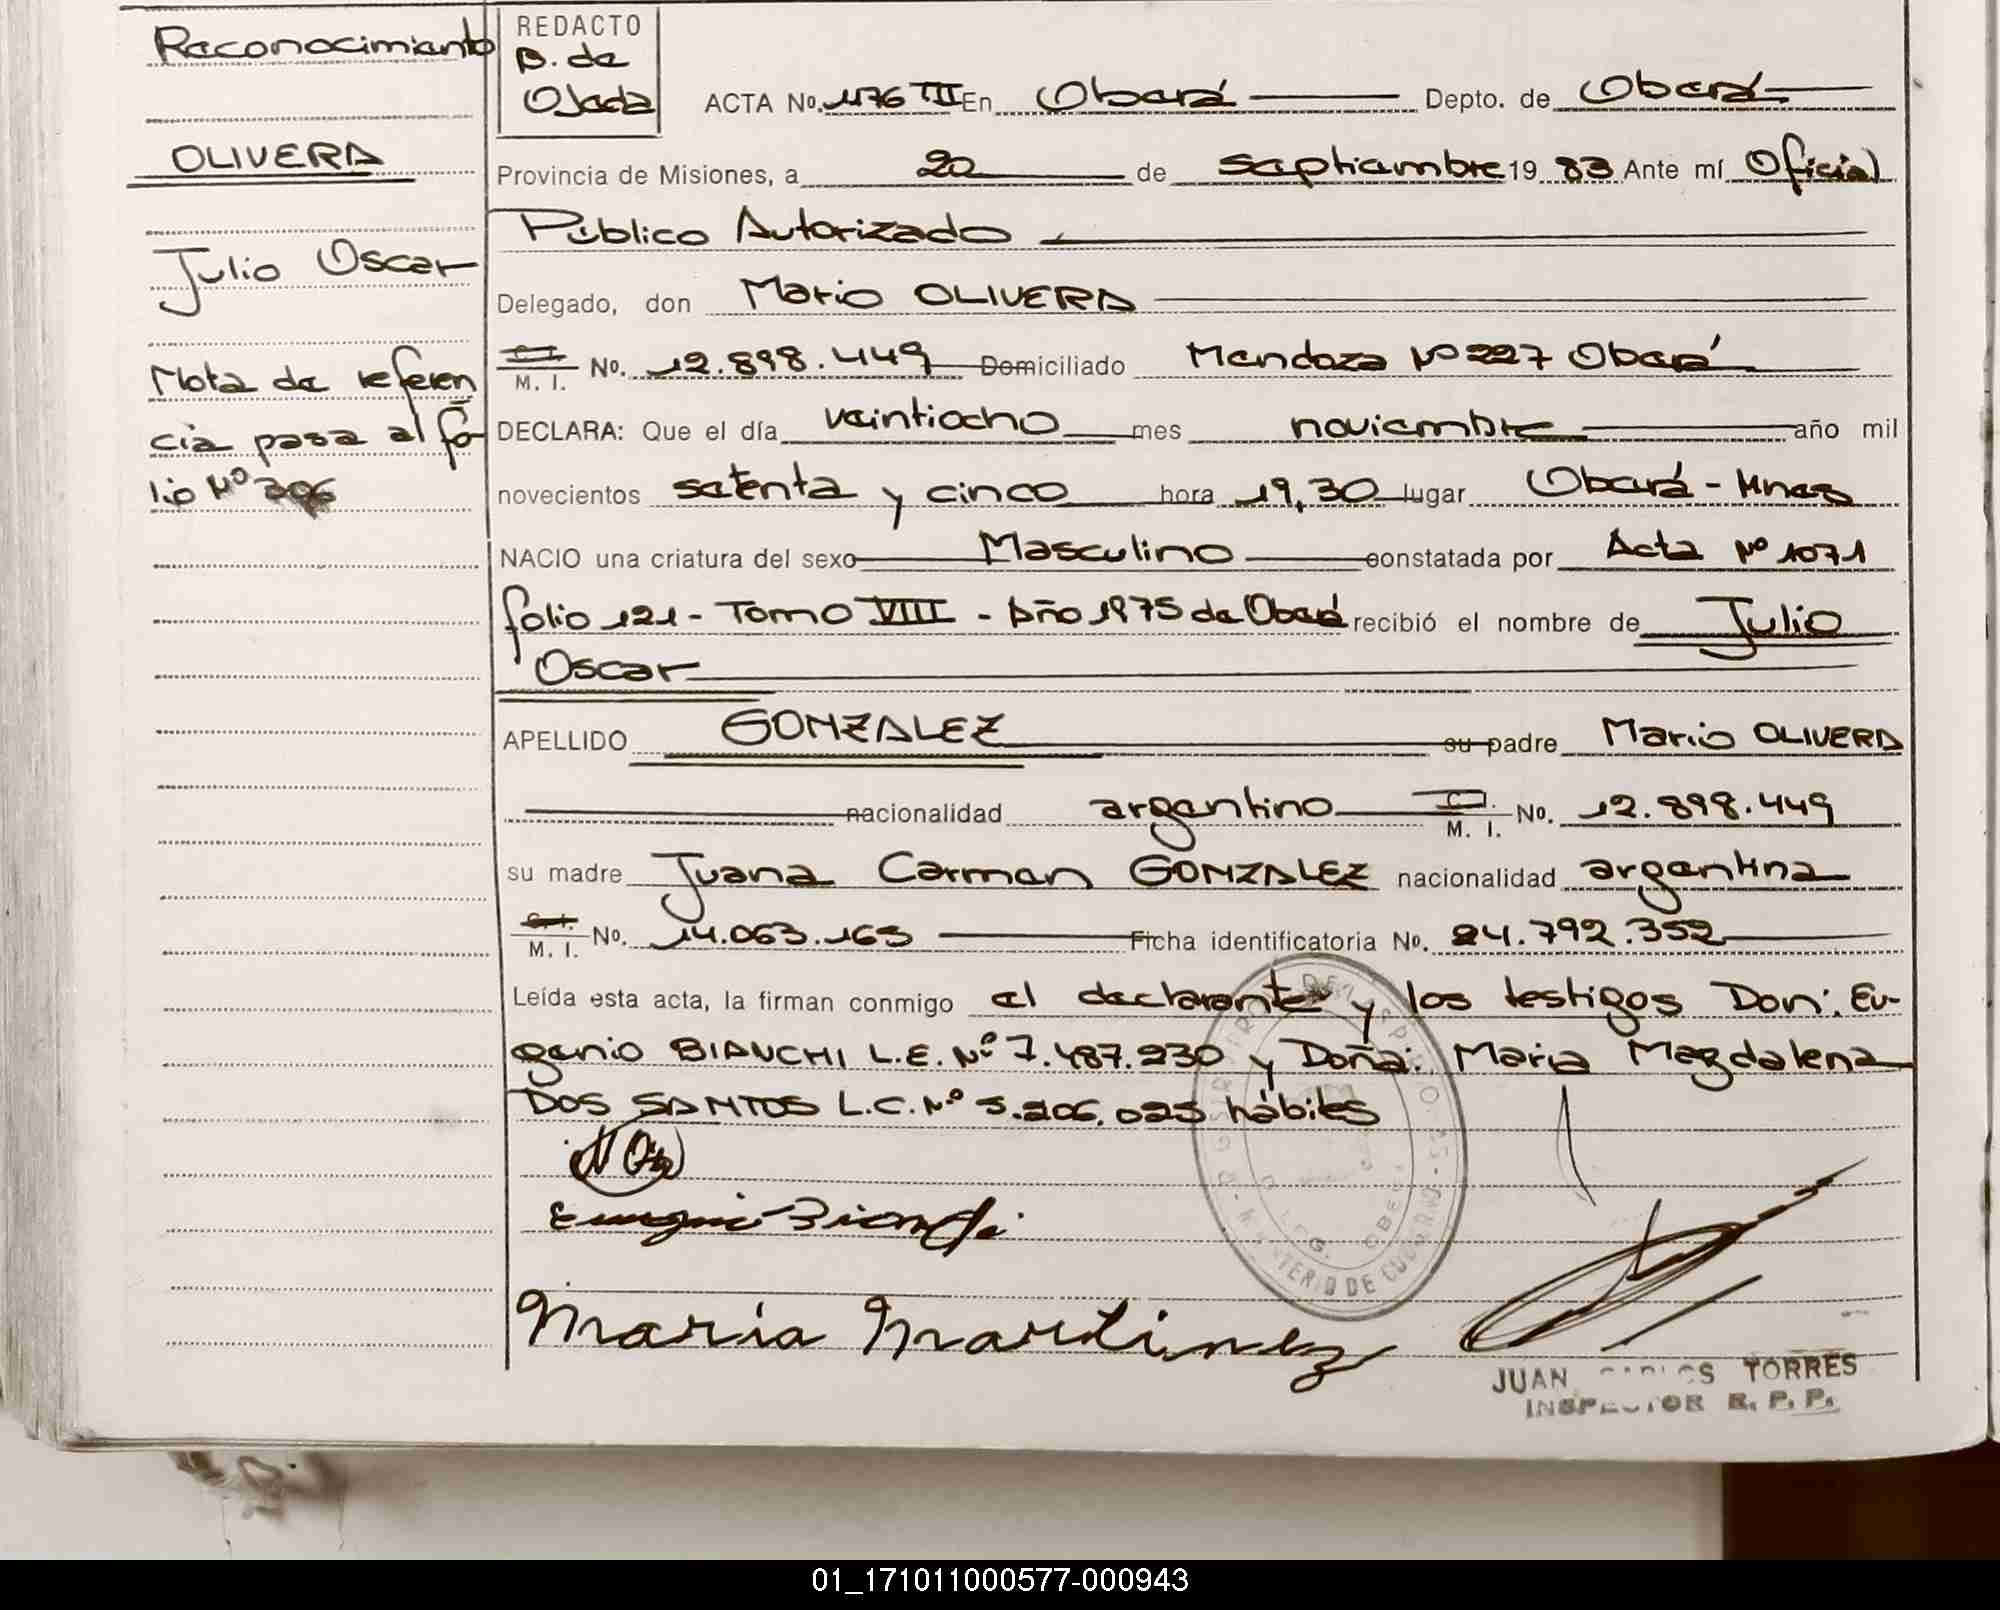 Reconocimiento
OLIVERA
Julio Oscar
Nota de referen
cia pasa al fo-
lio Nº 306
REDACTO
B. de
Ojeda
ACTA No. 1176 TIII En Oberá Depto. de Oberá
Provincia de Misiones, a 20 de septiembre 19 83 Ante mí Oficial
Público Autorizado
Delegado, don Mario OLIVERA
C.I. M. I. No. 12.898.449 Domiciliado Mendoza Nº 227 Oberá
DECLARA: Que el día veintiocho mes noviembre año mil
novecientos setenta y cinco hora 19,30 lugar Oberá - Mnes
NACIO una criatura del sexo Masculino constatada por Acta Nº 1071
folio 121 - Tomo VIII - Año 1975 de Oberá recibió el nombre de Julio
Oscar
APELLIDO GONZALEZ su padre Mario OLIVERA
nacionalidad argentino C.I. M. I. No. 12.898.449
su madre Juana Carmen GONZALEZ nacionalidad argentina
C.I. M. I. No. 14.063.163 Ficha identificatoria No. 24.792.352
Leída esta acta, la firman conmigo el declarante y los testigos Don: Eu-
genio BIANCHI L.E. Nº 7.487.230 y Doña: Maria Magdalena
DOS SANTOS L.C. Nº 5.206.025 hábiles
Maria Martinez
JUAN CARLOS TORRES
INSPECTOR R. P. P.
01_171011000577-000943